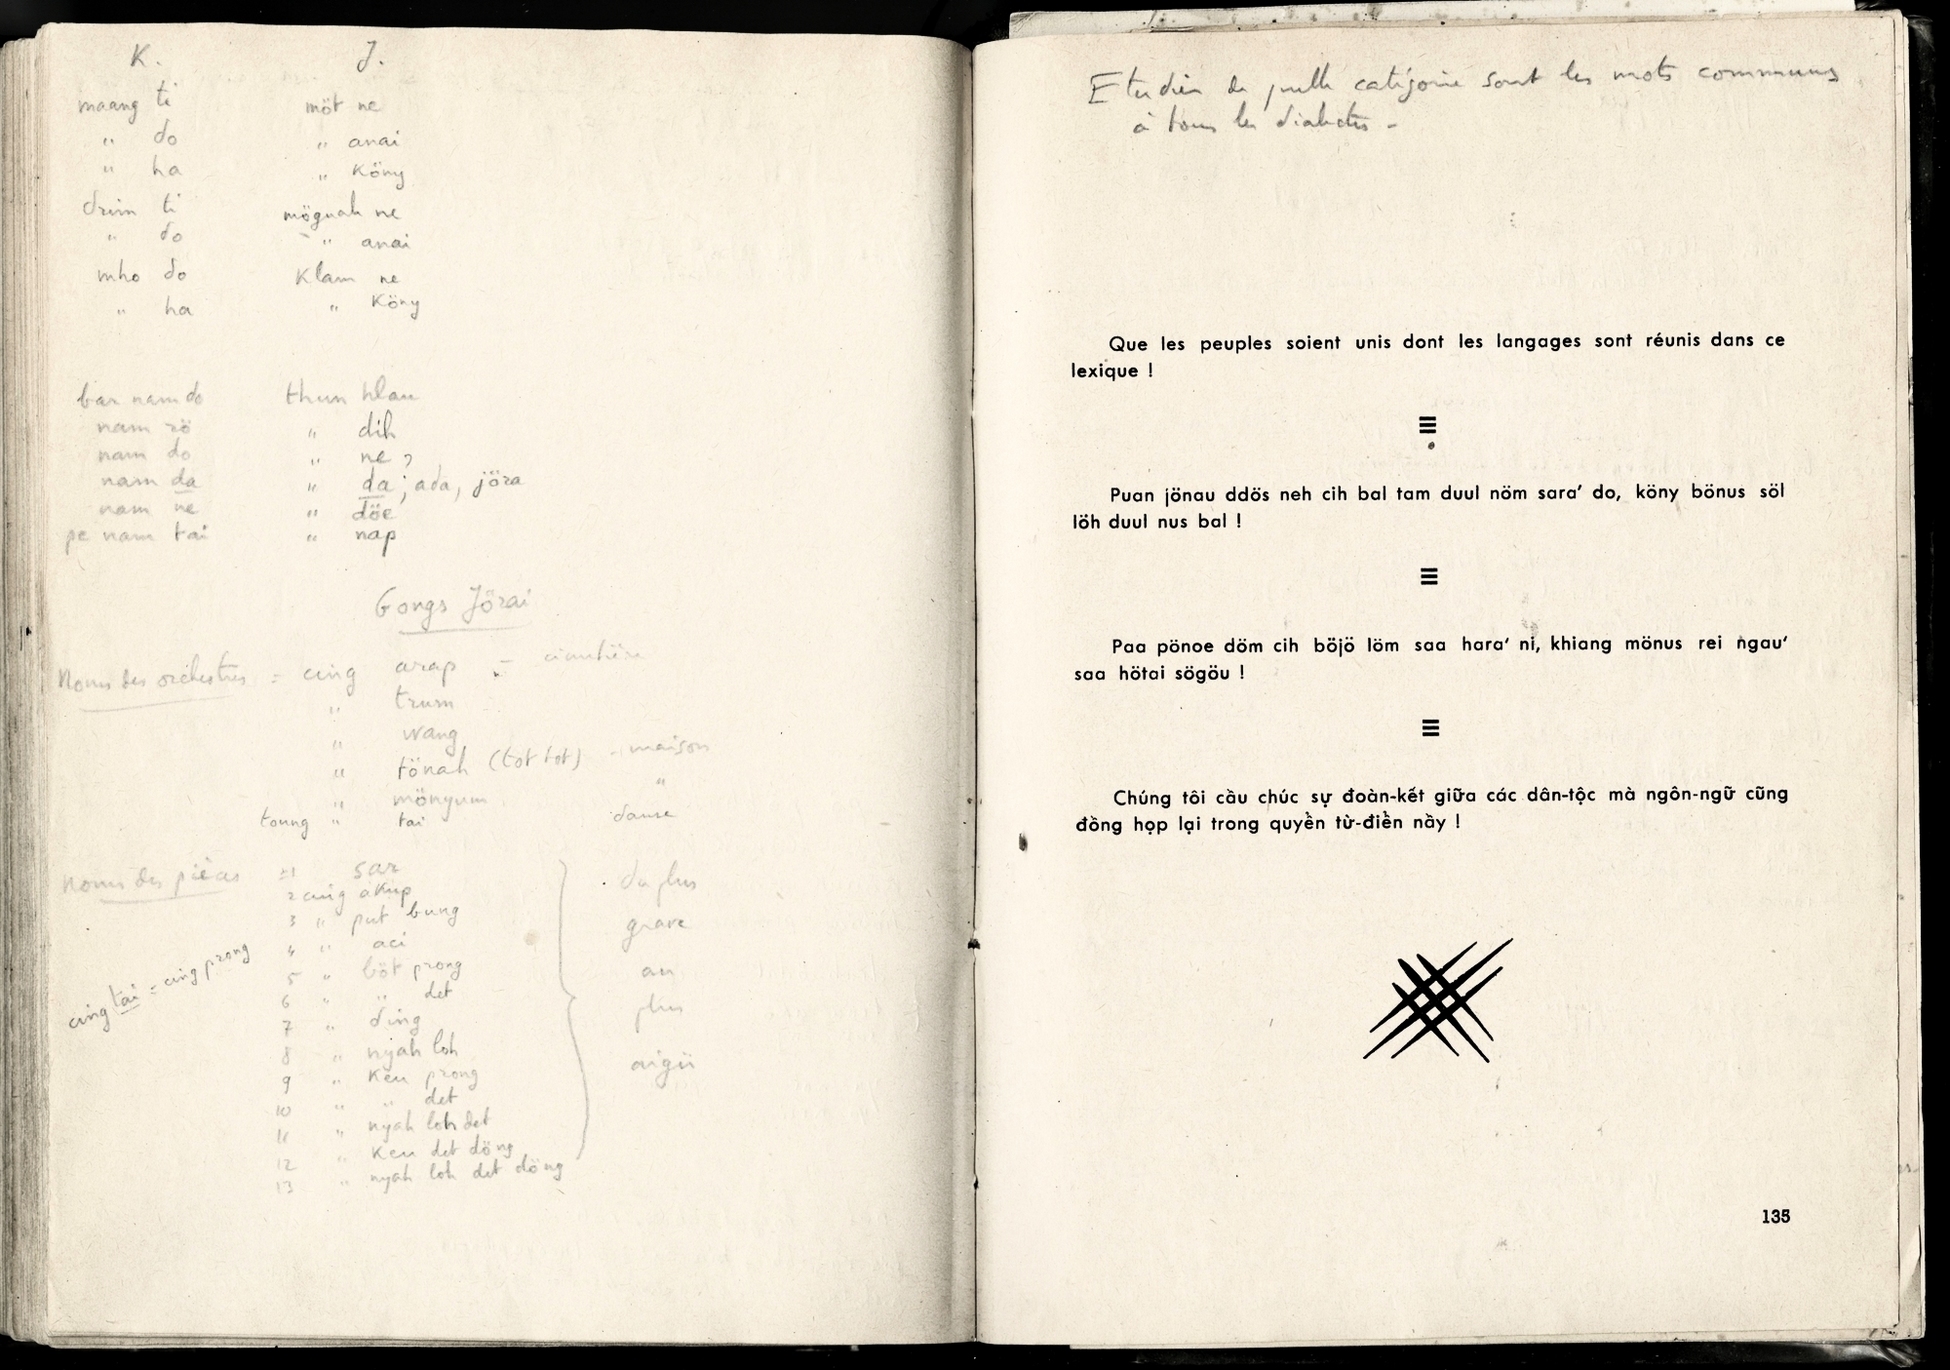 K. J.
maang ti möt ne
" do " anai
" ha " Köny
drim ti mögnah ne
" do " anai
mho do Klam ne
" ha " Köny
bar nam do thun hlau
nam rö " dih
nam do " ne ?
nam da " da ; ada, jöra
nam ne " döe
pe nam tai " nap
Gongs Jörai
Noms des orchestres = cing arap =
" trum
" wang
" tönah (tot tot) - maison
" mönyum "
toung " tai danse
Noms des pièces 1 sar
2 cing akup
3 " put bung
4 " aci
5 " böt prong
6 " " det
7 " ding
8 " nyah loh
9 " Keu prong
10 " " det
11 " nyah loh det
12 " Keu det döng
13 " nyah loh det döng
du plus
grave
au
plus
aigü
cing tai = cing prong
Etudier de quelle catégorie sont les mots communs
à tous les dialectes -
Que les peuples soient unis dont les langages sont réunis dans ce
lexique !
Puan jönau ddös neh cih bal tam duul nöm sara' do, köny bönus söl
löh duul nus bal !
Paa pönoe döm cih böjö löm saa hara' ni, khiang mönus rei ngau'
saa hötai sögöu !
Chúng tôi cầu chúc sự đoàn-kết giữa các dân-tộc mà ngôn-ngữ cũng
đồng họp lại trong quyền từ-điển nầy !
135